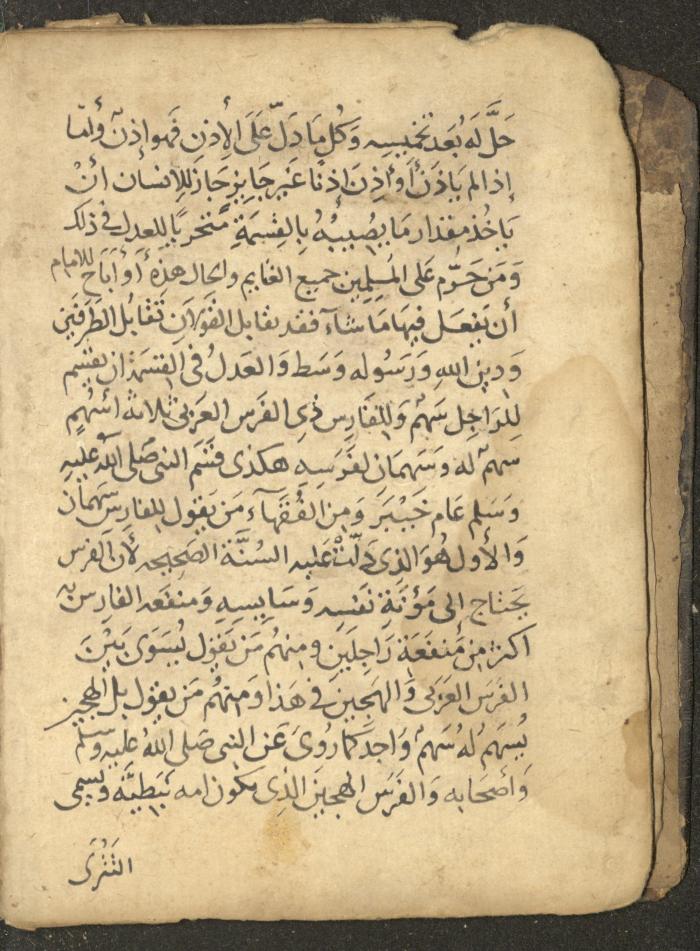 حَلَّ لَهُ بَعْدَ تَخْمِيسِهِ وَكُلُّ مَا دَلَّ عَلَى الْأِذْنِ فَهو إذنٌ وأمّا
إذا لم يَاذَنْ أَوْ أَذِنَ إذنًا غَيرَ جَايِزٍ جَازَ لِلْإِنسان أنْ
يَاخُذ مقدار مَا يُصِيبُهُ بِالقِسْمَةِ مُتحرّيًا للعدل في ذلك
وَمَن حَرَّم على المُسلِمِين جميع الغنايم والحال هذهِ أَوْ أبَاحَ للامام
أن يَفعَل فيهَا مَا شاءَ فقد تقابل القَولانِ تَقابُل الطَرَفَينِ
وَدين اللهِ وَرَسُوله وَسَط وَالعَدلُ في القسمَة ان يقسم
لِلرَاجِل سَهمٌ وَللفَارِس ذي الفَرَس العَربي ثلاثة اسْهُمٍ
سهمٌ له وسَهمَان لفَرَسِهِ هكذى قسَم النبى صَلى اللهُ عليهِ
وَسَلم عَام خَيْبَرَ وَمِن الفُقَهَآء مَن يَقول للفارِس سَهمَان
وَالأول هُوَ الذِى دَلّتْ عَليه السُنَّة الصَحِيحه لأن الفرس
يَحتاج الى مَؤنَةِ نَفسِه وَسَايِسِهِ وَمنفعَه الفارِس به
اكثر مِن مَنفعَة رَاجِلَين ومنهُم مَن يَقول يُسَوَى بَيْنَ
الفرَس العَرَبى وَالهَجِينَ في هَذا وَمِنهُم مَن يقول بل الهجين
يُسهَم لهُ سَهمٌ وَاحد كما رُوىَ عَن النبى صَلى اللهُ عليه وسَلم
وَأصحَابه وَالفَرَس الهجينَ الذِى تكون امه نَبَطِيَّه ويُسمى
التَتَرى